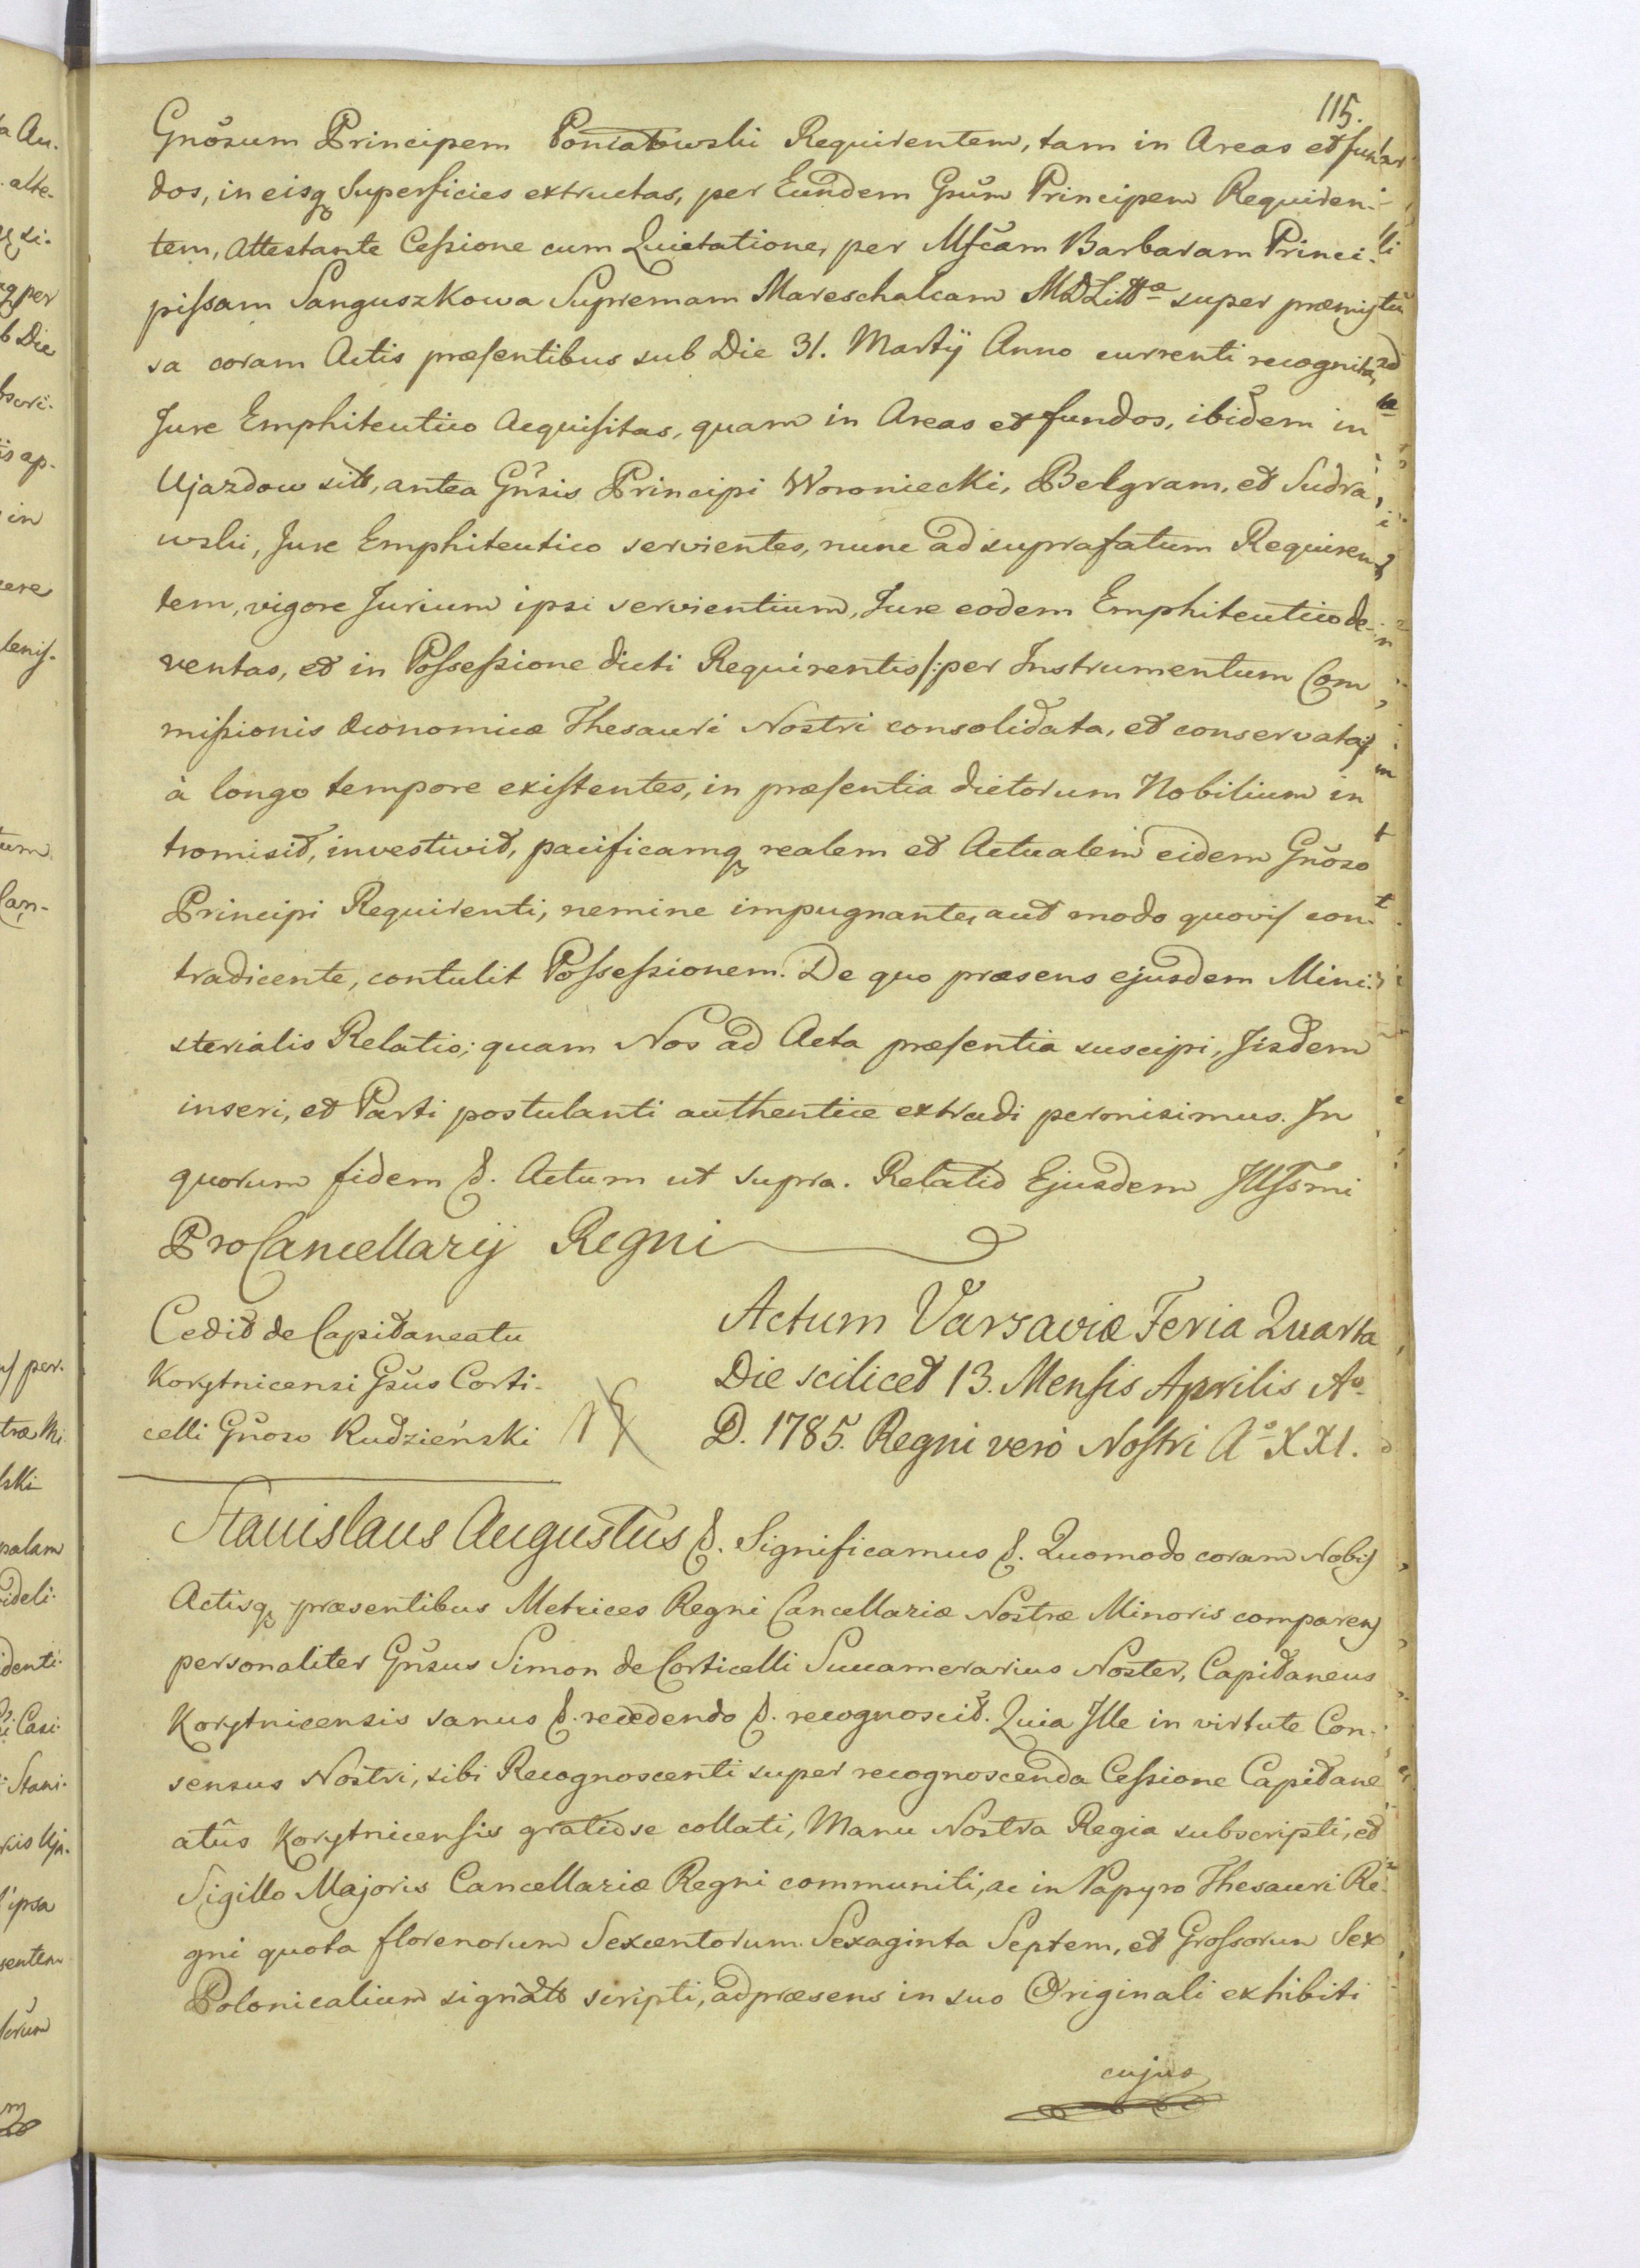 115.
Gnõsum Principem Poniatowski Requirentem, tam in Areas et fun
dos, in eisq. Superficies extructas, per Eundem Gsũm Principem Requiren-
tem, Attestante Cessione cum Quietatione, per Mfc̃am Barbaram Princi-
pissam Sanguszkowa Supremam Mareschalcam MDLittæ super præmis
sa coram Actis præsentibus sub Die 31. Martÿ Anno currenti recognita,
Jure Emphiteutico Acquisitas, quam in Areas et fundos, ibidem in
Ujazdow sitt, antea Gñsis Principi Woroniecki, Belgram, et Sudra
wski, Jure Emphiteutico servientes, nunc ad suprafatum Requiren
tem, vigore Jurium ipsi servientium, Jure eodem Emphiteutico de-
ventas, et in Possessione dicti Requirentis /: per Instrumentum Com
missionis Œconomicæ Thesauri Nostri consolidata, et conservata :/
à longo tempore existentes, in præsentia dictorum Nobilium in
tromisit, investivit, pacificamq. realem et Actualem eidem Gñoso
Principi Requirenti, nemine impugnante, aut modo quovis con-
tradicente, contulit Possessionem. De quo præsens ejusdem Mini-
sterialis Relatio; quam Nos ad Acta præsentia suscipi, Jisdem
inseri, et Parti postulanti authentice extradi permisimus. In
quorum fidem &. Actum ut supra. Relatio Ejusdem Illssmi
ProCancellarij Regni
Cedit de Capitaneatu
Korytnicensi Gsũs Corti-
celli Gñoso Rudzieński
Actum Varsaviæ Feria Quarta
Die scilicet 13. Mensis Aprilis Aº
D. 1785. Regni verò Nostri Aº XXI.
Stanislaus Augustus &. Significamus &. Quomodo coram Nobis
Actisq. præsentibus Metrices Regni Cancellariæ Nostræ Minoris comparens
personaliter Gñsus Simon de Corticelli Succamerarius Noster, Capitaneus
Korytnicensis sanus &. recedendo &. recognoscit. Quia Ille in virtute Con-
sensus Nostri, sibi Recognoscenti super recognoscenda Cessione Capitane
atûs Korytnicensis gratiose collati, Manu Nostra Regia subscripti, et
Sigillo Majoris Cancellariæ Regni communiti, ac in Papyro Thesauri Re-
gni quota florenorum Sexcentorum Sexaginta Septem, et Grossorum Sex
Polonicalium signato scripti, ad præsens in suo Originali exhibiti
cujus